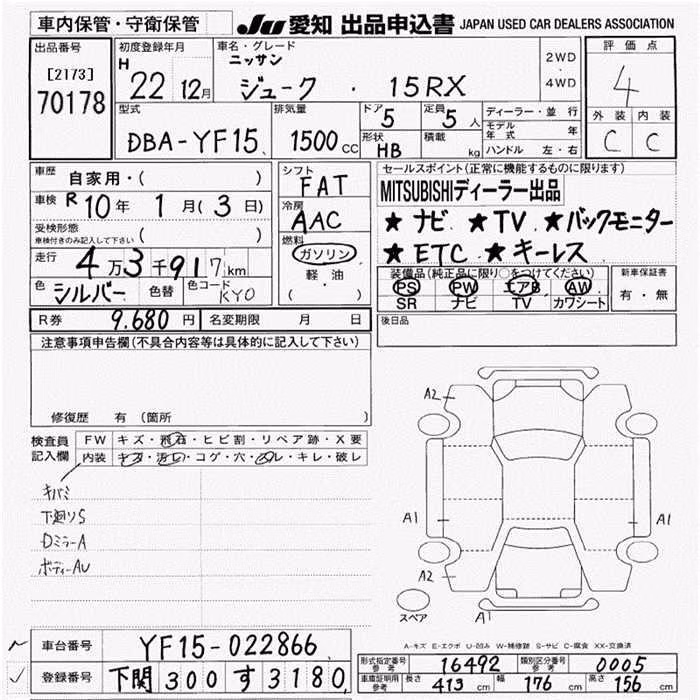 車内保管・守衛保管
JU 愛知 出品申込書 JAPAN USED CAR DEALERS ASSOCIATION
出品番号
[2173]
70178
初度登録年月
H 22 12月
車名・グレード
ニッサン
ジューク ・ 15RX
2WD
・
4WD
評価点
4
外装 内装
C C
型式
DBA-YF15
排気量
1500 CC
ドア 5
形状 HB
定員 5 人
積載 kg
ディーラー・並行
モデル年式 年
ハンドル 左・右
車歴 自家用・( )
車検 R 10年 1月(3日)
受検形態
車検付きのみ記入して下さい ( )
走行 4万3千917km
色 シルバー 色替 色コード KYO
シフト
FAT
冷房
AAC
燃料
ガソリン
軽油
( ・ )
セールスポイント(正常に機能するものに限ります)
MITSUBISHIディーラー出品
★ナビ ★TV ★バックモニター
★ETC ★キーレス
装備品(純正品に限り○をつけてください)
PS PW エアB AW
SR ナビ TV カワシート
新車保証書
有・無
R券 9.680円 名変期限 月 日
後日品
注意事項申告欄(不具合内容等は具体的に記入して下さい)
修復歴 有(箇所 )
検査員
記入欄
FW キズ・飛石・ヒビ割・リペア跡・X要
内装 キズ・汚レ・コゲ・穴・スレ・キレ・破レ
キバミ
下廻りS
DミラーA
ボディーAU
A2
A1
A1
A2
A1
スペア
A-キズ E-エクボ U-凹み W-補修跡 S-サビ C-腐食 XX-交換済
車台番号 YF15-022866
登録番号 下関 300 す 3180
形式指定番号 参考 16492 類別区分番号 参考 0005
車庫証明用 参考 長さ 413 cm 幅 176 cm 高さ 156 cm